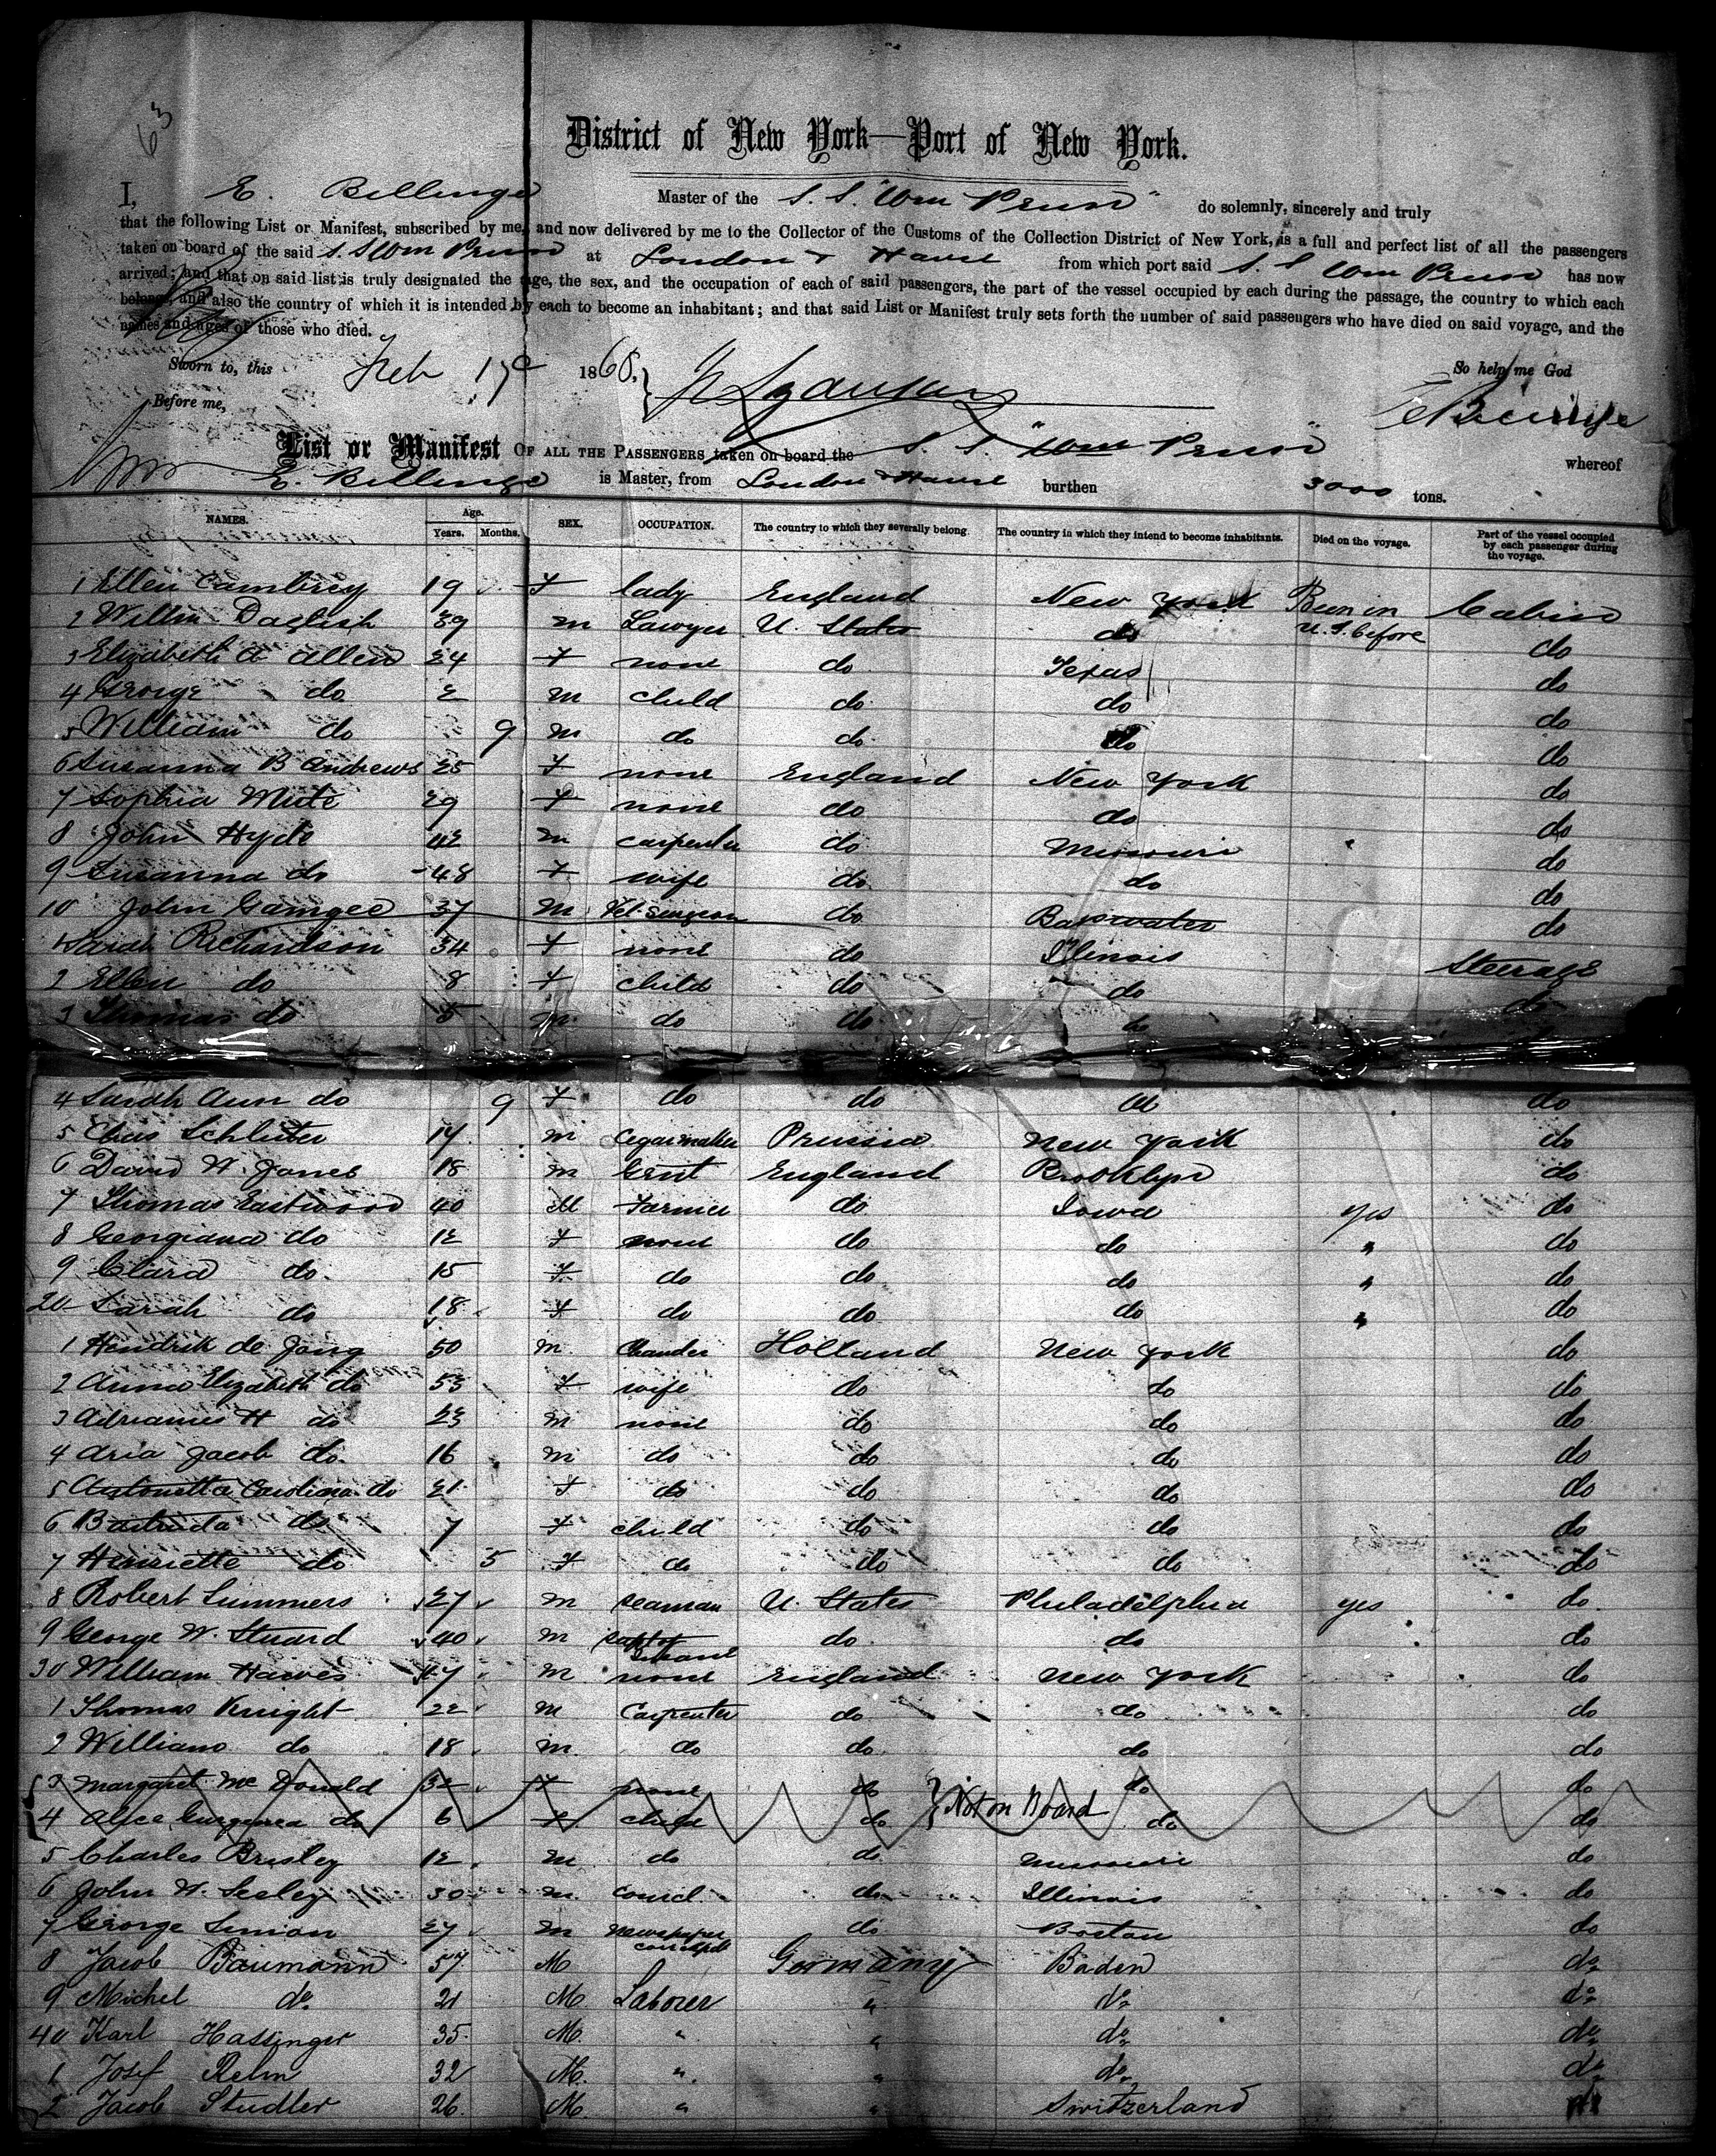 63
District of New York—Port of New York.
I, E. Billinge Master of the S. S. "Wm Penn" do solemnly, sincerely and truly
that the following List or Manifest, subscribed by me, and now delivered by me to the Collector of the Customs of the Collection District of New York, is a full and perfect list of all the passengers
taken on board of the said S. S Wm Penn at London & Havre from which port said S. S Wm Penn has now
arrived; and that on said list is truly designated the age, the sex, and the occupation of each of said passengers, the part of the vessel occupied by each during the passage, the country to which each
belongs, and also the country of which it is intended by each to become an inhabitant; and that said List or Manifest truly sets forth the number of said passengers who have died on said voyage, and the
names and ages of those who died.
Sworn to, this Feb 17 1868, So help me God
Before me, E Billinge
List or Manifest OF ALL THE PASSENGERS taken on board the S. S. "Wm Penn" whereof
E. Billinge is Master, from London & Havre burthen 3000 tons.
NAMES. Age. Years. Months. SEX. OCCUPATION. The country to which they severally belong. The country in which they intend to become inhabitants. Died on the voyage. Part of the vessel occupied by each passenger during the voyage.
1 Ellen Cambrey 19 F lady England New York Been in Cabin
2 Willm Daglish 39 M Lawyer U. States do U.S. before do
3 Elizabeth A Allen 24 F none do Texas do
4 George do 2 M child do do do
5 William do 9 M do do do do
6 Susanna B Andrews 25 F none England New York do
7 Sophia Mute 29 F none do do do
8 John Hyde 42 M carpenter do Missouri do
9 Susanna do 48 F wife do do do
10 John Gamgee 37 M Vet. Surgeon do Bayswater do
1 Sarah Richardson 34 F none do Illinois Steerage
2 Ellen do 8 F child do do do
3 Thomas do 5 M do do do
4 Sarah Ann do 9 F do do do do
5 Chas Schluter 17 M Cegarmaker Prussia New York do
6 David W. Jones 18 M Gent England Brooklyn do
7 Thomas Eastwood 40 M Farmer do Iowa yes do
8 Georgiana do 12 F none do do " do
9 Clara do. 15 F do do do " do
20 Sarah do 18 F do do do " do
1 Hendrik de Jong 50 M Holland New York do
2 Anna Elizabeth do 53 F wife do do do
3 Adrianus H do 23 M none do do do
4 Aria Jacob do. 16 M do do do do
5 Antonetta Carolina do 21 F do do do do
6 do 7 F child do do do
7 Henriette do 5 F do do do do
8 Robert Summers 27 M seaman U. States Philadelphia yes do
9 George W. Stuard 40 M do do " do
30 William Hawes 47 M none England New York do
1 Thomas Knight 22 M Carpenter do do do
2 William do 18 M do do do do
3 Margaret Mc Donald 32 F none do do do
4 Alice do 6 F child do } Not on Board do do
5 Charles Brisley 12 M do do Missouri do
6 John W. Seeley 30 M do Illinois do
7 George Simion 27 M Newspaper do Boston do
8 Jacob Baumann 57 M Germany Baden do
9 Michel do 21 M Laborer " do do
40 Karl Hassinger 35 M. " " do do
1 Josef Relm 32 M. " " do do
2 Jacob Studler 26 M. " " Switzerland